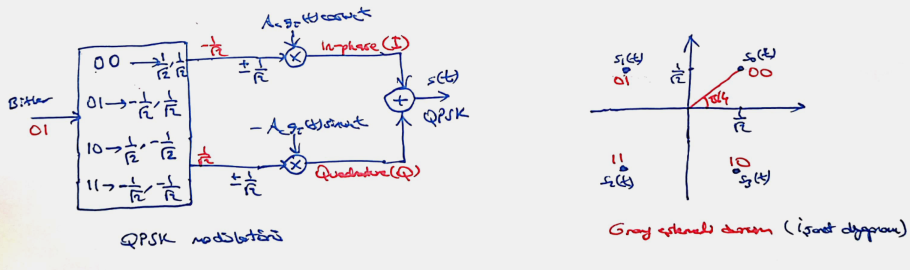 Bitler
01
00 → 1/√2, 1/√2
01 → -1/√2, 1/√2
10 → 1/√2, -1/√2
11 → -1/√2, -1/√2
-1/√2
± 1/√2
A_c g_T(t) cosω_c t
In-phase (I)
1/√2
± 1/√2
-A_c g_T(t) sinω_c t
Quadrature (Q)
+
s(t)
QPSK
QPSK modülatörü
s₁(t)
01
1/√2
s₀(t)
00
π/4
1/√2
11
s₂(t)
10
s₃(t)
Gray eşlemeli durum (işaret diyagramı)